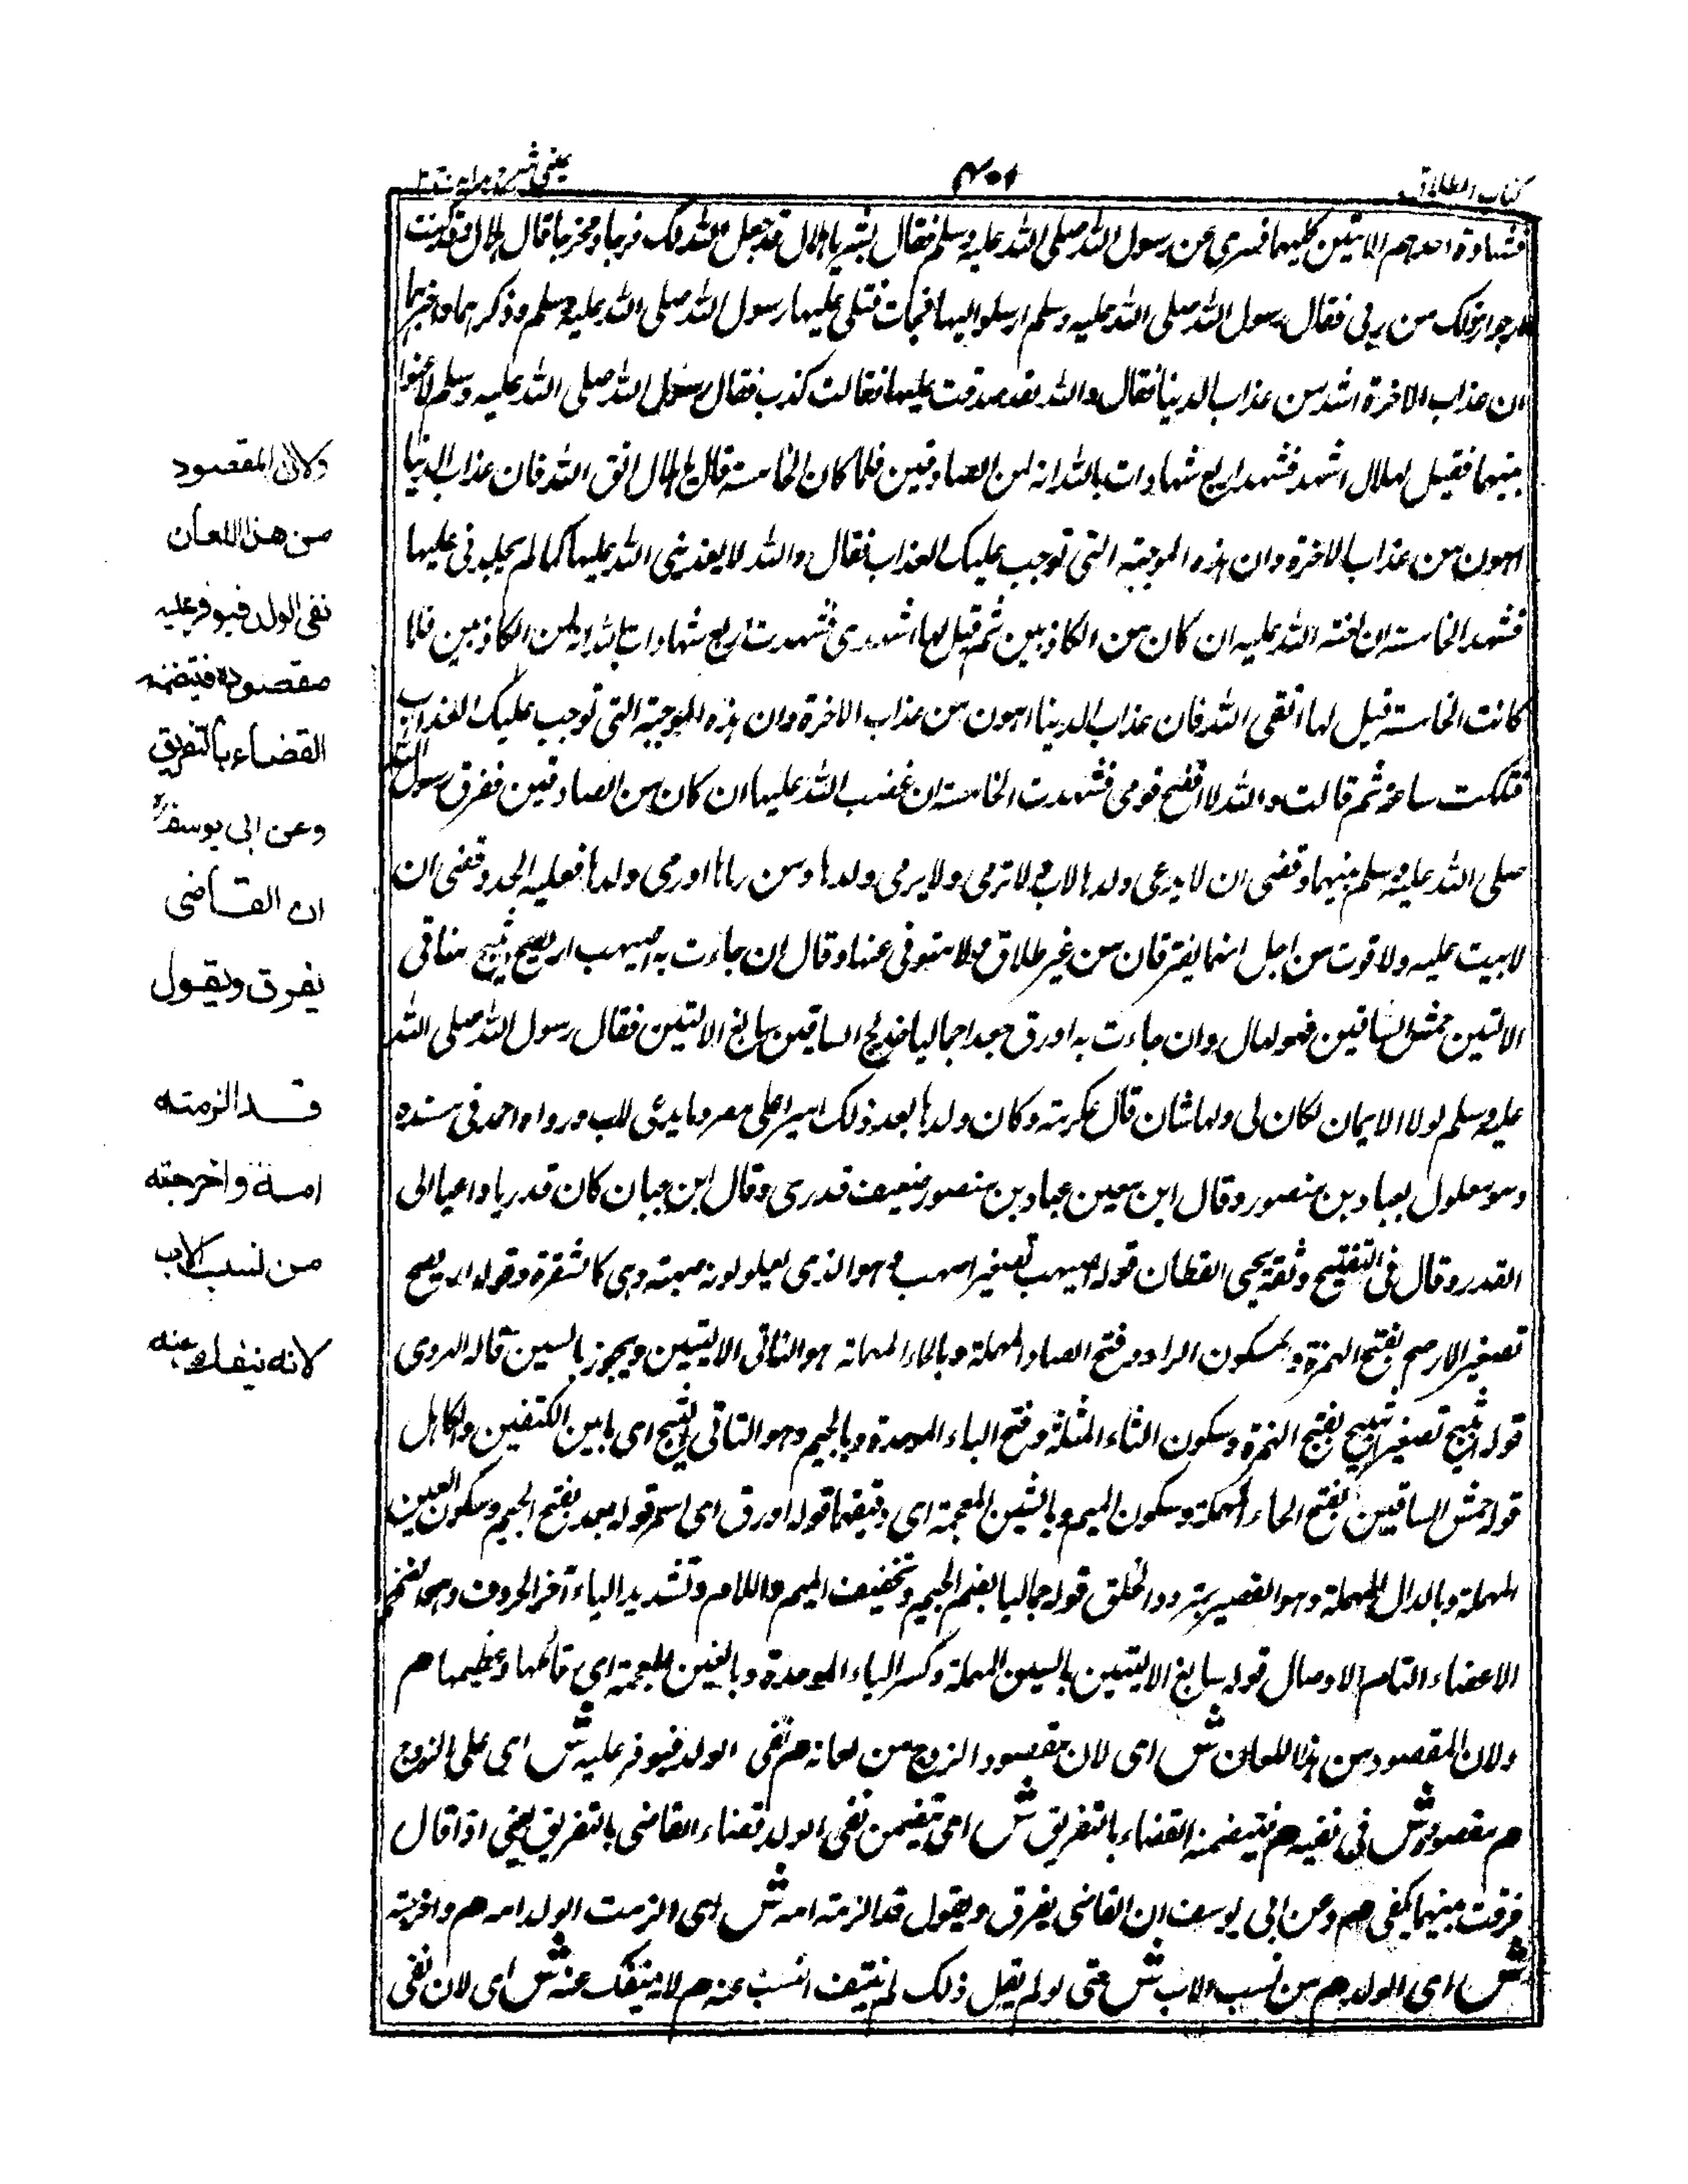 كتاب الطلاق
٤٠١
عينى شرح هداية ج٢
فشهادة احدهم الايتين كليهما فسرى عن رسول الله صلى الله عليه وسلم فقال ابشر يا هلال قد جعل الله لك فرجا ومخرجا قال هلال قد كنت
ارجو ذلك من ربى فقال رسول الله صلى الله عليه وسلم ارسلوا اليها فجاءت فتلى عليها رسول الله صلى الله عليه وسلم وذكرهما واخبرهما
ان عذاب الاخرة اشد من عذاب الدنيا فقال والله لقد صدقت عليها فقالت كذب فقال رسول الله صلى الله عليه وسلم لاعنوا
بينهما فقيل لهلال اشهد فشهد اربع شهادات بالله انه لمن الصادقين فلما كان الخامسة قال يا هلال اتق الله فان عذاب الدنيا
اهون من عذاب الاخرة وان هذه الموجبة التى توجب عليك العذاب فقال والله لا يعذبنى الله عليها كما لم يجلدنى عليها
فشهد الخامسة ان لعنة الله عليه ان كان من الكاذبين ثم قيل لها اشهدى فشهدت اربع شهادات بالله انه لمن الكاذبين فلما
كانت الخامسة قيل لها اتقى الله فان عذاب الدنيا اهون من عذاب الاخرة وان هذه الموجبة التى توجب عليك العذاب
فتلكت ساعة ثم قالت والله لا افضح قومى فشهدت الخامسة ان غضب الله عليها ان كان من الصادقين ففرق رسول الله
صلى الله عليه وسلم بينهما وقضى ان لا يدعى ولدها لاب ولا ترمى ولا يرمى ولدها ومن رماها اورمى ولدها فعليه الحد وقضى ان
لا بيت عليه ولا قوت من اجل انهما يفترقان من غير طلاق ولا متوفى عنها وقال ان جاءت به اصيهب اريصح اثيبج ناتى
الاليتين حمش الساقين فهو لهلال وان جاءت به اورق جعدا جماليا خدلج الساقين سابغ الاليتين فقال رسول الله صلى الله
عليه وسلم لولا الايمان لكان لى ولها شان قال عكرمة وكان ولدها بعد ذلك اميرا على مصر وما يدعى للاب ورواه احمد فى مسنده
وهو معلول بعباد بن منصور وقال ابن معين عباد بن منصور ضعيف قدرى وقال ابن حبان كان قدريا داعيا الى
القدر وقال فى التنقيح وثقة يحيى القطان قوله اصيهب تصغير اصهب وهو الذى يعلو لونه صهبة وهى كالشقرة وقوله اريصح
تصغير الارصح بفتح الهمزة وسكون الراء وفتح الصاد المهملة وبالحاء المهملة هو الناتى الاليتين ويجوز بالسين قاله الهروى
قوله اثيبج تصغير اثبج بفتح الهمزة وسكون الثاء المثلثة وفتح الباء الموحدة وبالجيم وهو الناتى الثبج اى ما بين الكتفين والكاهل
قوله حمش الساقين بفتح الحاء المهملة وسكون الميم وبالشين المعجمة اى دقيقهما قوله اورق اى اسمر قوله جعد بفتح الجيم وسكون العين
المهملة وبالدال المهملة وهو القصير متردد الخلق قوله جماليا بضم الجيم وتخفيف الميم واللام وتشديد الياء آخر الحروف وهو الضخم
الاعضاء التام الاوصال قوله سابغ الاليتين بالسين المهملة وكسر الباء الموحدة وبالغين المعجمة اى تامهما وعظيمهما م
ولان المقصود من هذا اللعان ش اى لان مقصود الزوج من لعانه م نفى الولد فيوفر عليه ش اى على الزوج
م مقصوده ش فى نفيه م فيتضمنه القضاء بالتفريق ش اى يتضمن نفى الولد قضاء القاضى بالتفريق يعنى اذا قال
فرقت بينهما يكفى م وعن ابى يوسف ان القاضى يفرق ويقول قد الزمته امه ش اى الزمت الولد امه م واخرجته
ش اى الولد م من نسب الاب ش حتى لو لم يقل ذلك لم ينتف النسب عنه م لانه ينفك عنه ش اى لان نفى
ولان المقصود
من هذا اللعان
نفى الولد فيوفر عليه
مقصوده فيتضمنه
القضاء بالتفريق
وعن ابى يوسف رح
ان القاضى
يفرق ويقول
قد الزمته
امه واخرجته
من نسب الاب
لانه ينفك عنه